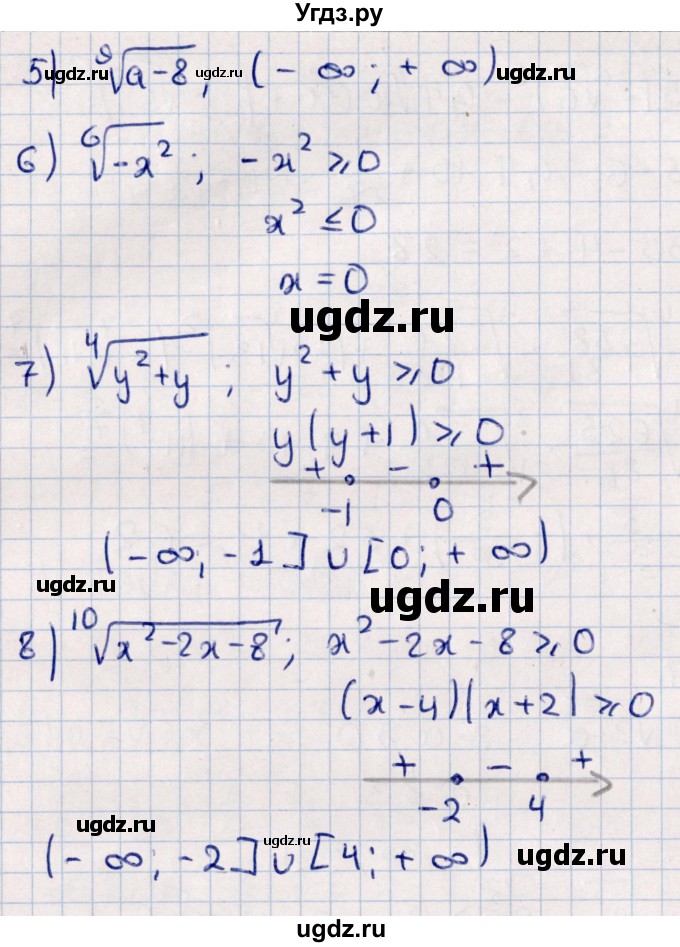 Угдз.ру
5) ⁹√(a-8); (-∞; +∞)
ugdz.ru ugdz.ru ugdz.ru ugdz.ru
6) ⁶√(-x²); -x² ⩾ 0
x² ≤ 0
x = 0
ugdz.ru
7) ⁴√(y²+y); y²+y ⩾ 0
y(y+1) ⩾ 0
+ - +
-1 0
(-∞; -1] ∪ [0; +∞)
ugdz.ru ugdz.ru
8) ¹⁰√(x²-2x-8); x²-2x-8 ⩾ 0
(x-4)(x+2) ⩾ 0
+ - +
-2 4
ugdz.ru ugdz.ru ugdz.ru
(-∞; -2] ∪ [4; +∞)
ugdz.ru